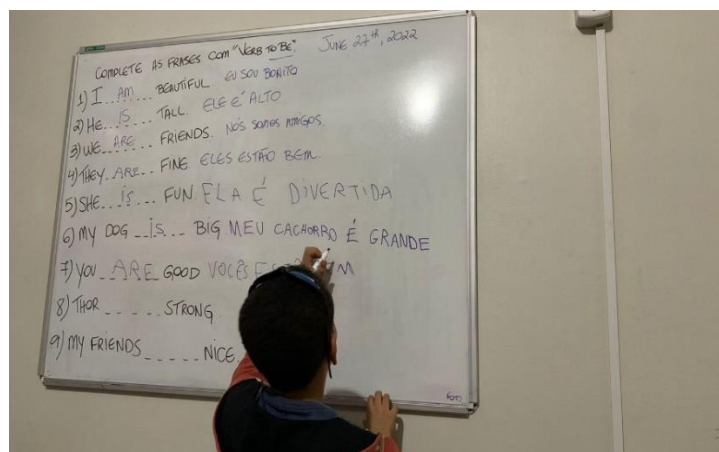 COMPLETE AS FRASES COM "VERB TO BE". JUNE 27th, 2022
1) I AM BEAUTIFUL. EU SOU BONITO
2) HE IS TALL. ELE É ALTO
3) WE ARE FRIENDS. NÓS SOMOS AMIGOS.
4) THEY ARE FINE. ELES ESTÃO BEM.
5) SHE is FUN. ELA É DIVERTIDA
6) MY DOG is BIG. MEU CACHORRO É GRANDE
7) YOU ARE GOOD VOCÊS
8) THOR _ _ _ _ _ STRONG
9) MY FRIENDS _ _ _ _ _ NICE.